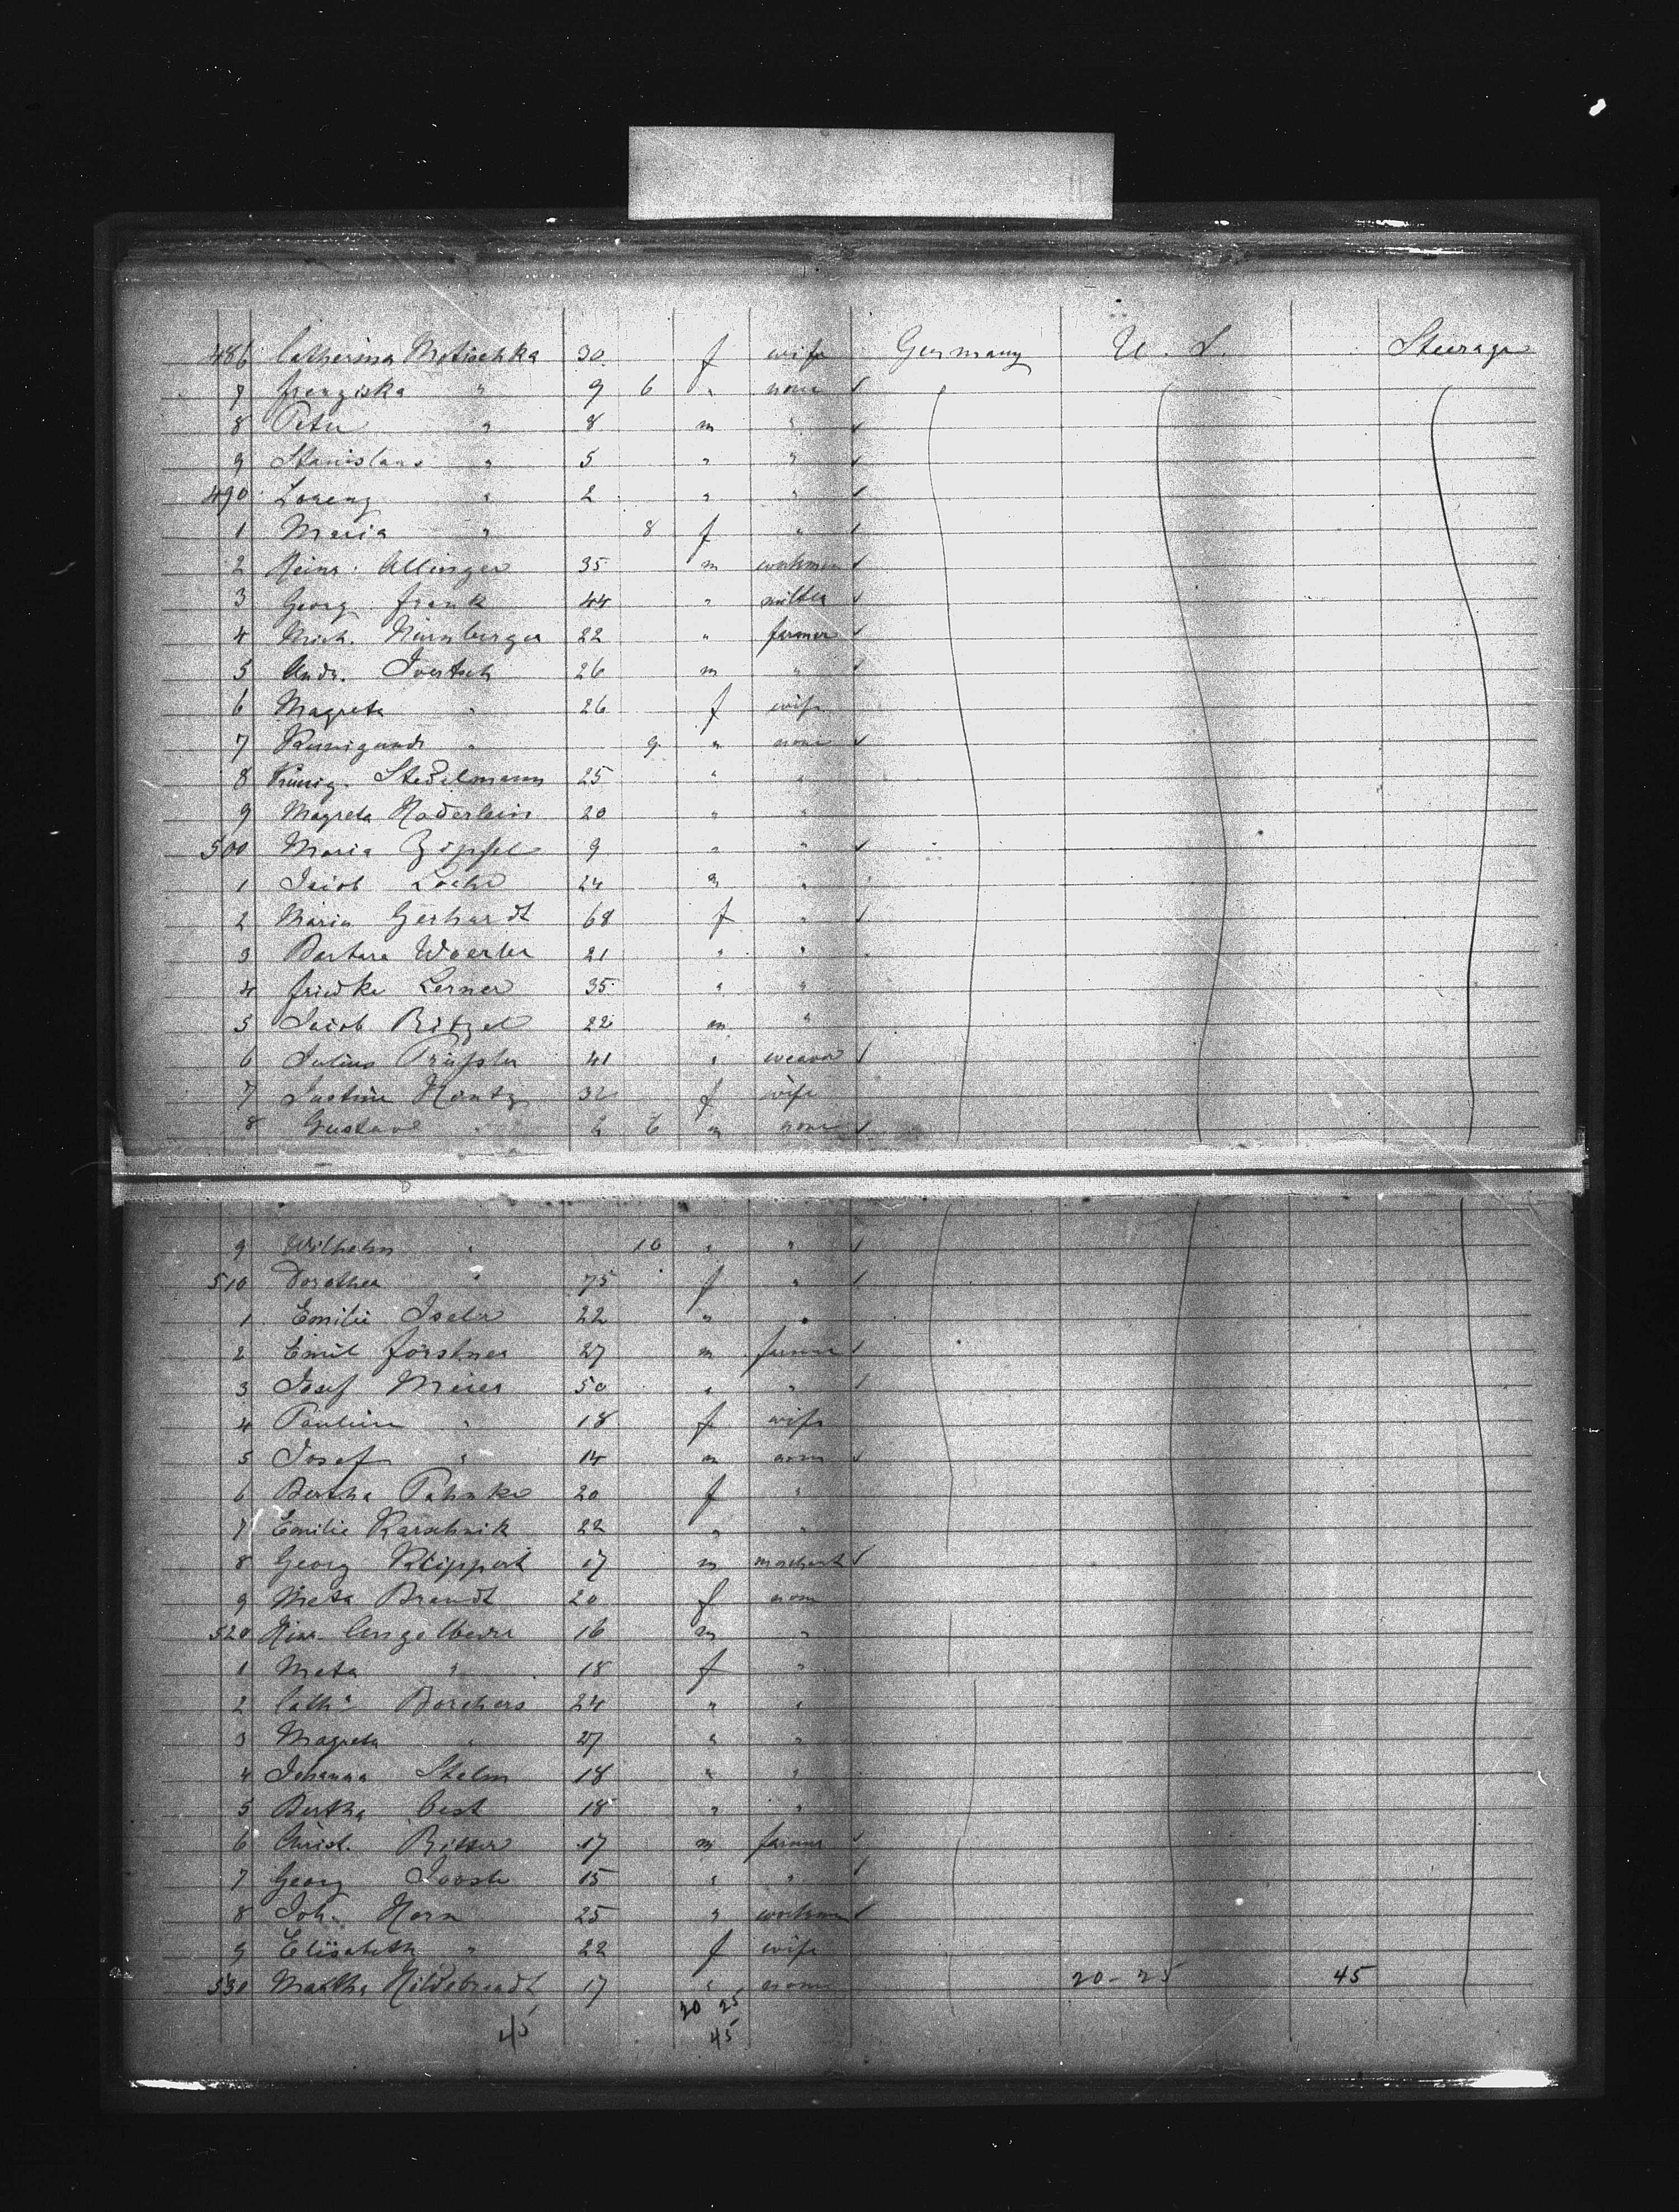 486 Catherina Motischka 30 f wife Germany U. S. Steerage
7 Franziska " 9 6 " none ✓
8 Peter " 8 m " ✓
9 Stanislaus " 5 " " ✓
490 Lorenz " 2 " " ✓
1 Maria " 8 f " ✓
2 Heinr. Allinger 35 m workman ✓
3 Georg Frank 44 " ✓
4 Mich. Nürnberger 22 " farmer ✓
5 Andr. 26 m " ✓
6 Magreta " 26 f wife
7 Kunigunde " 9 " none ✓
8 Kunig. Stedelmann 25 " "
9 Magreta Haderlein 20 " "
500 Maria Zipfel 9 " " ✓
1 Jacob 24 m "
2 Maria Gerhardt 68 f " ✓
3 Barbara Woerler 21 " "
4 Friedke Lerner 35 " "
5 Jacob Ritzel 22 m "
6 Julius 41 " weaver ✓
7 Justine Hintz 32 f wife
8 Gustave " 2 6 m none ✓
9 Wilhelm " 10 " " ✓
510 Dorothea " 75 f " ✓
1 Emilie 22 " "
2 Emil Förstner 27 m farmer ✓
3 Josef Meier 50 " " ✓
4 Pauline " 18 f wife
5 Josef " 14 m none ✓
6 Bertha Pahnke 20 f "
7 Emilie Karschnik 22 " "
8 Georg Klippert 17 m ✓
9 Meta Brandt 20 f none
520 Hinr. Angelbeck 16 m "
1 Meta " 18 f "
2 Cath. Borchers 24 " "
3 Magreta " 27 " "
4 Johanna Stelm 18 " "
5 Bertha 18 " "
6 Christ. Ritter 17 m farmer ✓
7 Georg 15 " " ✓
8 Joh. Horn 25 " workman ✓
9 Elisabeth " 22 f wife
530 Martha Hildebrandt 17 " none 20-25 45
20 25
45 45